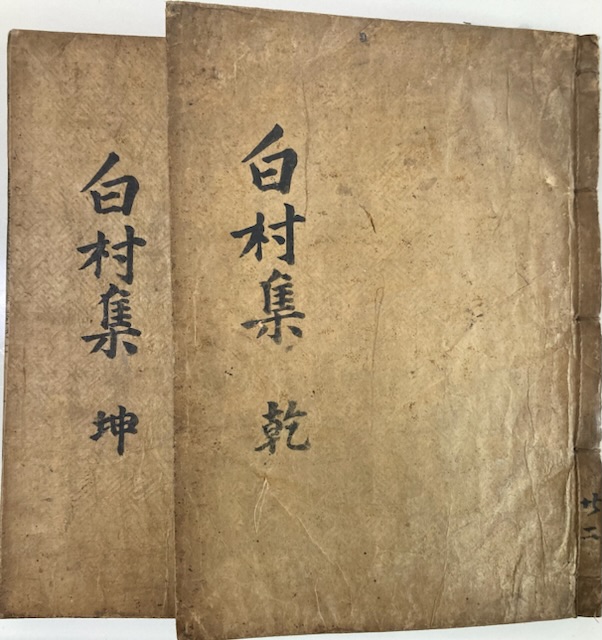 白村集 乾
白村集 坤
共二